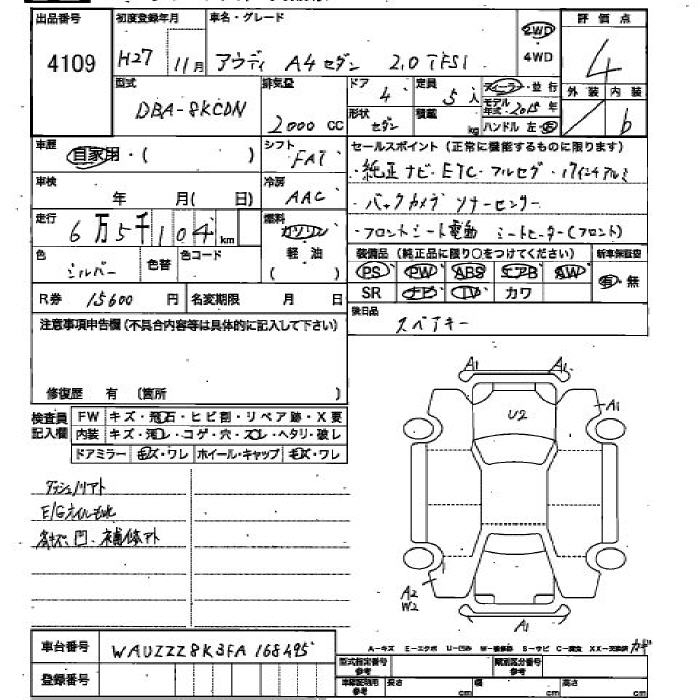 出品番号
4109
初度登録年月
H27 11月
車名・グレード
アウディ A4 セダン 2.0 TFSI
2WD
4WD
評価点
4
外装 内装
b
型式
DBA-8KCDN
排気量
2000 CC
ドア
4
定員
5人
ディーラー・並行
モデル年式・2015年
ハンドル 左・右
形状
セダン
積載
kg
車歴
自家用・( )
シフト
FAT
セールスポイント(正常に機能するものに限ります)
・純正ナビ・ETC・フルセグ・17インチアルミ
・バックカメラ ソナーセンサー
・フロントシート電動 シートヒーター(フロント)
車検
年 月( 日)
冷房
AAC
走行
6万5千104km
燃料
ガソリン
軽油
( )
色
シルバー
色替
色コード
装備品(純正品に限り○をつけてください)
新車保証空
PS PW ABS エアB AW
有・無
SR ナビ TV カワ
R券 15600 円
名変期限 月 日
後日品
スペアキー
注意事項申告欄(不具合内容等は具体的に記入して下さい)
修復歴 有 (箇所 )
検査員記入欄
FW キズ・飛石・ヒビ割・リペア跡・X要
内装 キズ・汚レ・コゲ・穴・スレ・ヘタリ・破レ
ドアミラー キズ・ワレ ホイール・キャップ キズ・ワレ
E/Gオイルもれ
小キズ、凹、補修アト
A1 A1
A1
U2
A2
W2
A1
車台番号
WAUZZZ8K3FA168495
登録番号
A-キズ E-エクボ U-凹み W-補修跡 S-サビ C-腐食 XX-交換済
型式指定番号 参考
類別区分番号 参考
車庫証明用 参考
長さ cm 幅 cm 高さ cm